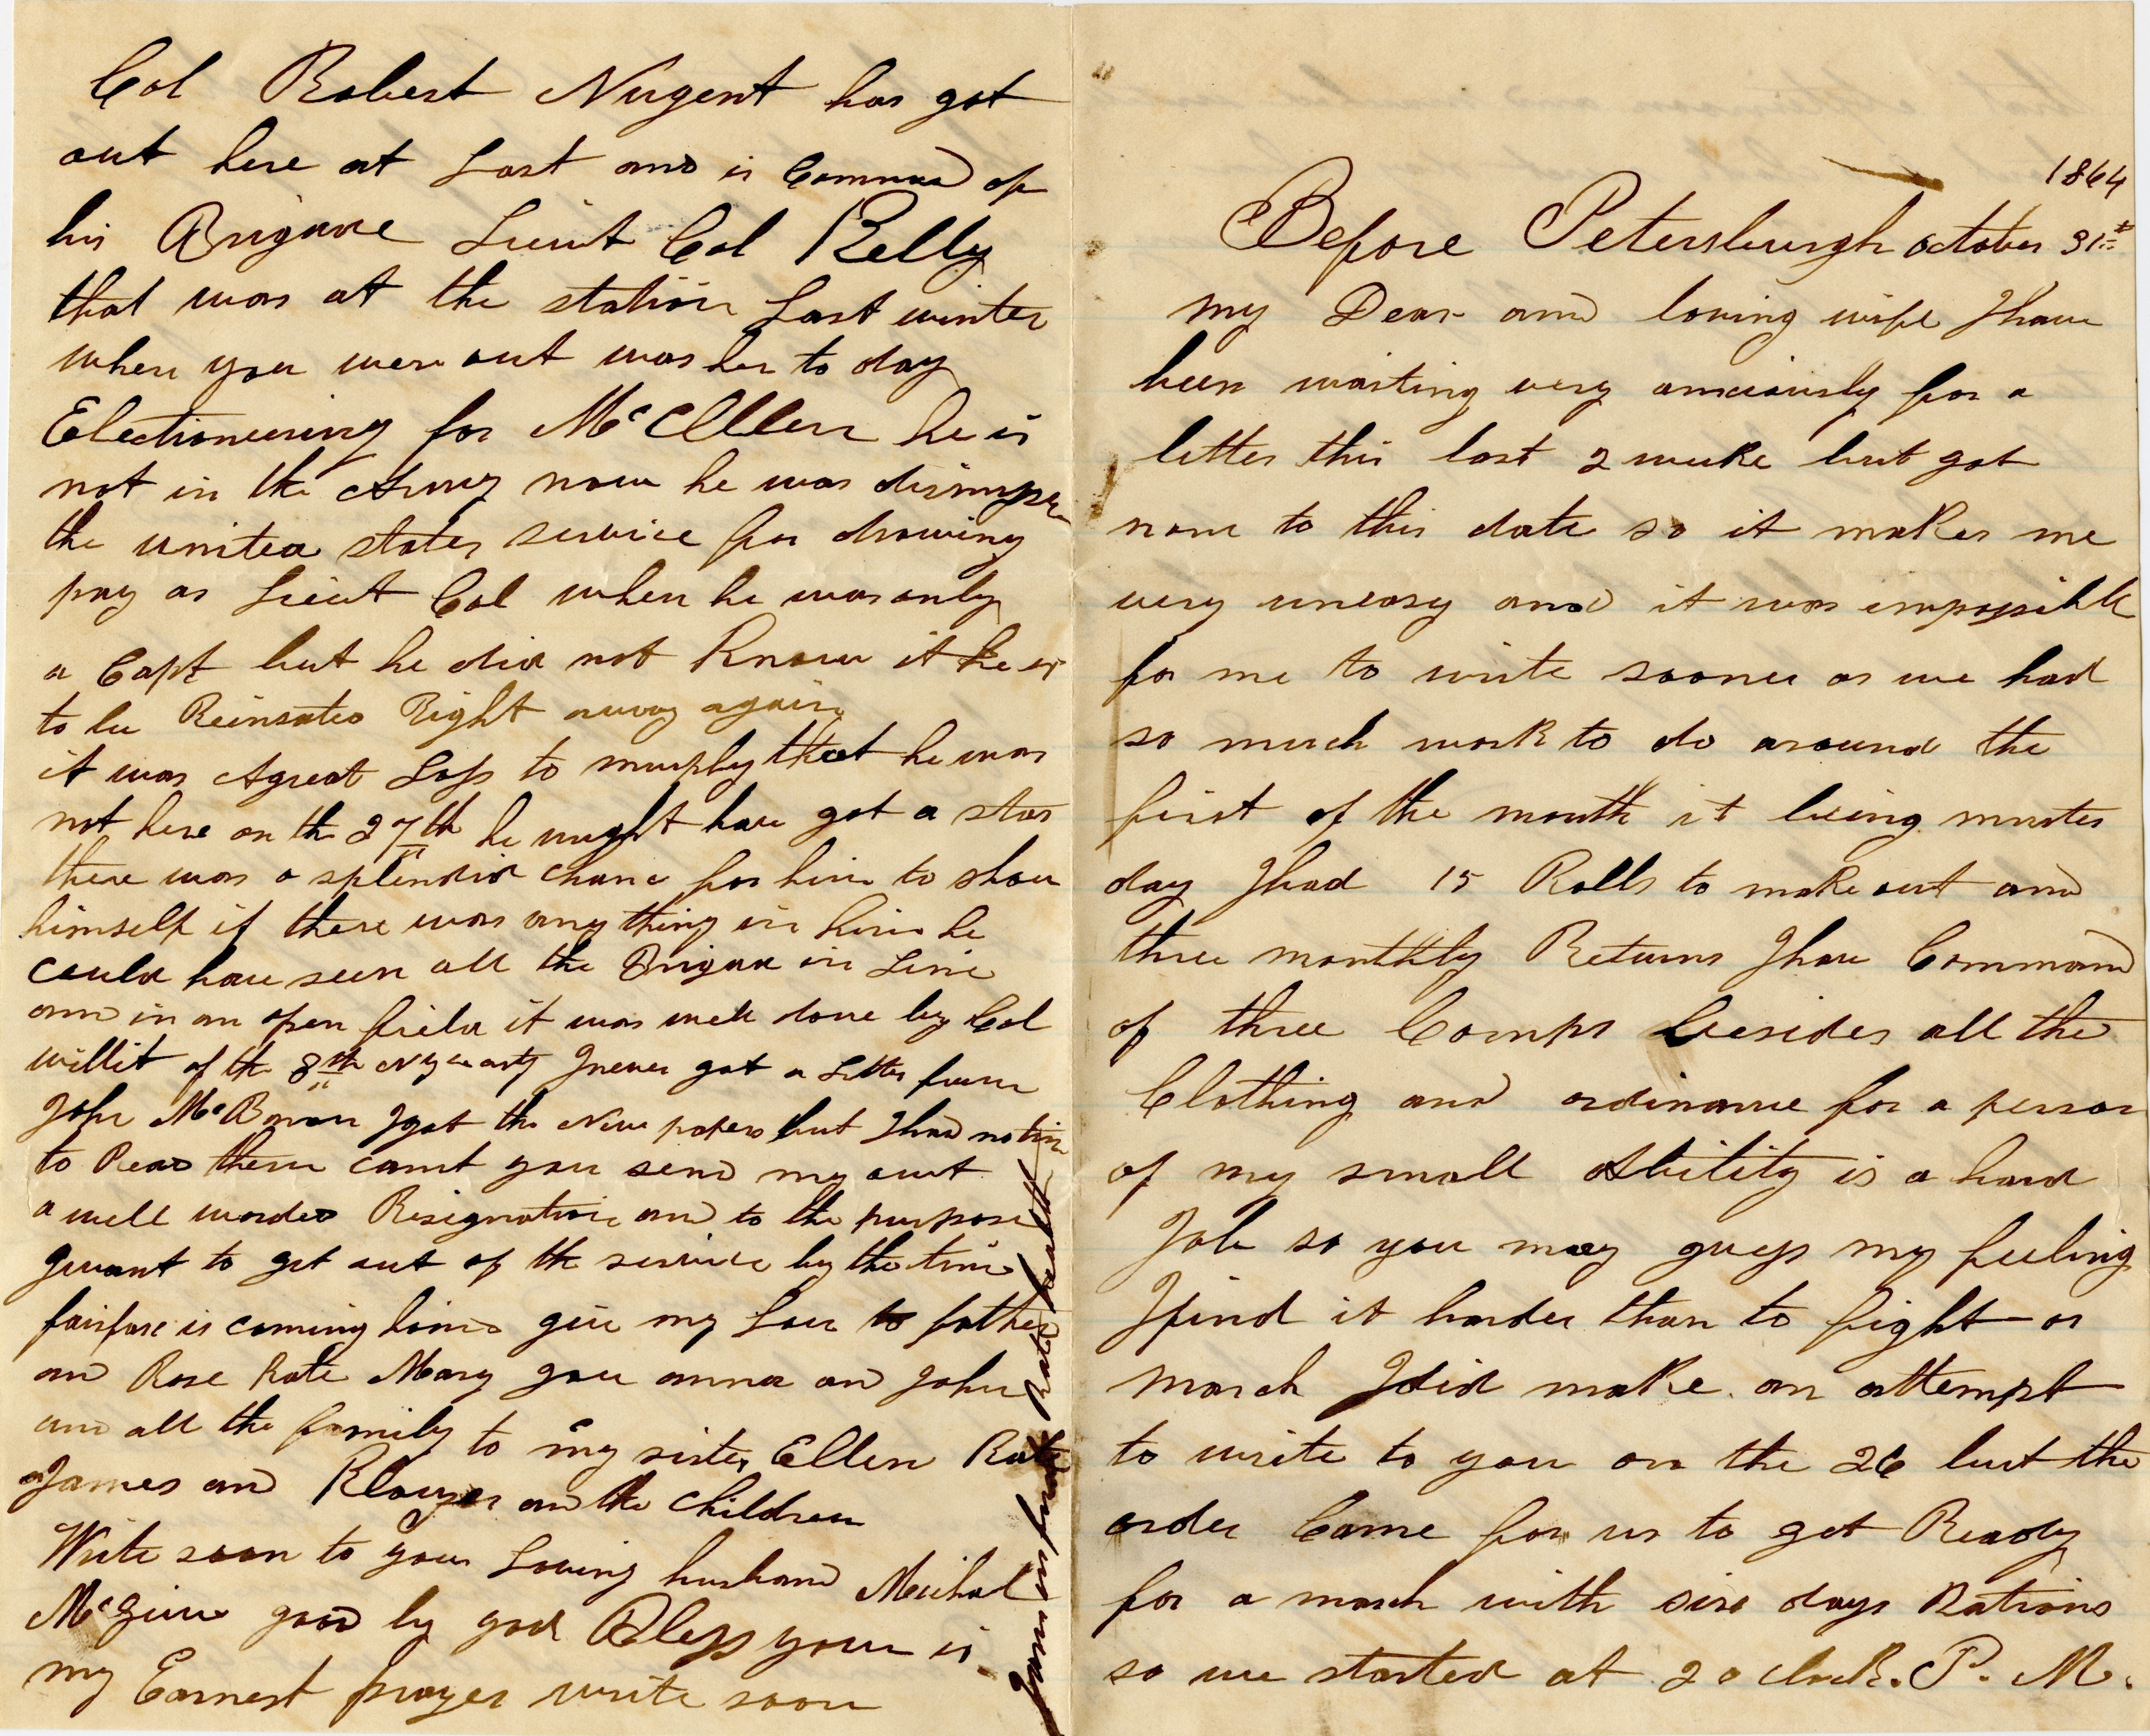 Col Robert Nugent has got
out here at Last and is Command of
his Brigade Lieut Col Kelly
that was at the station Last winter
when you were out was her to day
Electioneering for McCllen he is
not in the Army now he was dismissed
the united states service for drawing
pay as Lieut Col when he was only
a Capt but he did not Know it he is
to be Reinsated Right away again
it was Agreat Loss to murphy that he was
not here on the 27th he might have got a star
there was a splendid chanc for him to show
himself if there was any thing in him he
could have seen all the Brigade in Line
and in an open field it was well done by Col
willit of the 8th Ny arty I never got a Letter from
John I got the New papers but I had no tim
to Read them cannt you send my out
a well worded Resignation and to the purpose
I want to get out of the service by the time
fairfax is coming home give my Love to father
and Rose Kate Mary you anna and John
and all the family to my sister Ellen Kate
James and and the children
Write soon to your Loving husband Micheal
McGuire good by god Bless you is
my Earnest prayer write soon
I am in my Rate health
1864
Before Petersburgh october 31st
my Dear and loving wife I have
been waiting very anxiously for a
letter this last 2 weeke but got
none to this date so it makes me
very uneasy and it was impossible
for me to write sooner as we had
so much work to do around the
first of the month it being muster
day I had 15 Rolls to make out and
three monthly Returns I have Command
of three Comps besides all the
Clothing and ordinance for a person
of my small Ability is a hard
Job so you may guess my feeling
I find it harder than to fight or
march I did make an attempt
to write to you on the 26 but the
order Came for us to get Ready
for a march with six days Rations
so we started at 2 o clock. P. M.